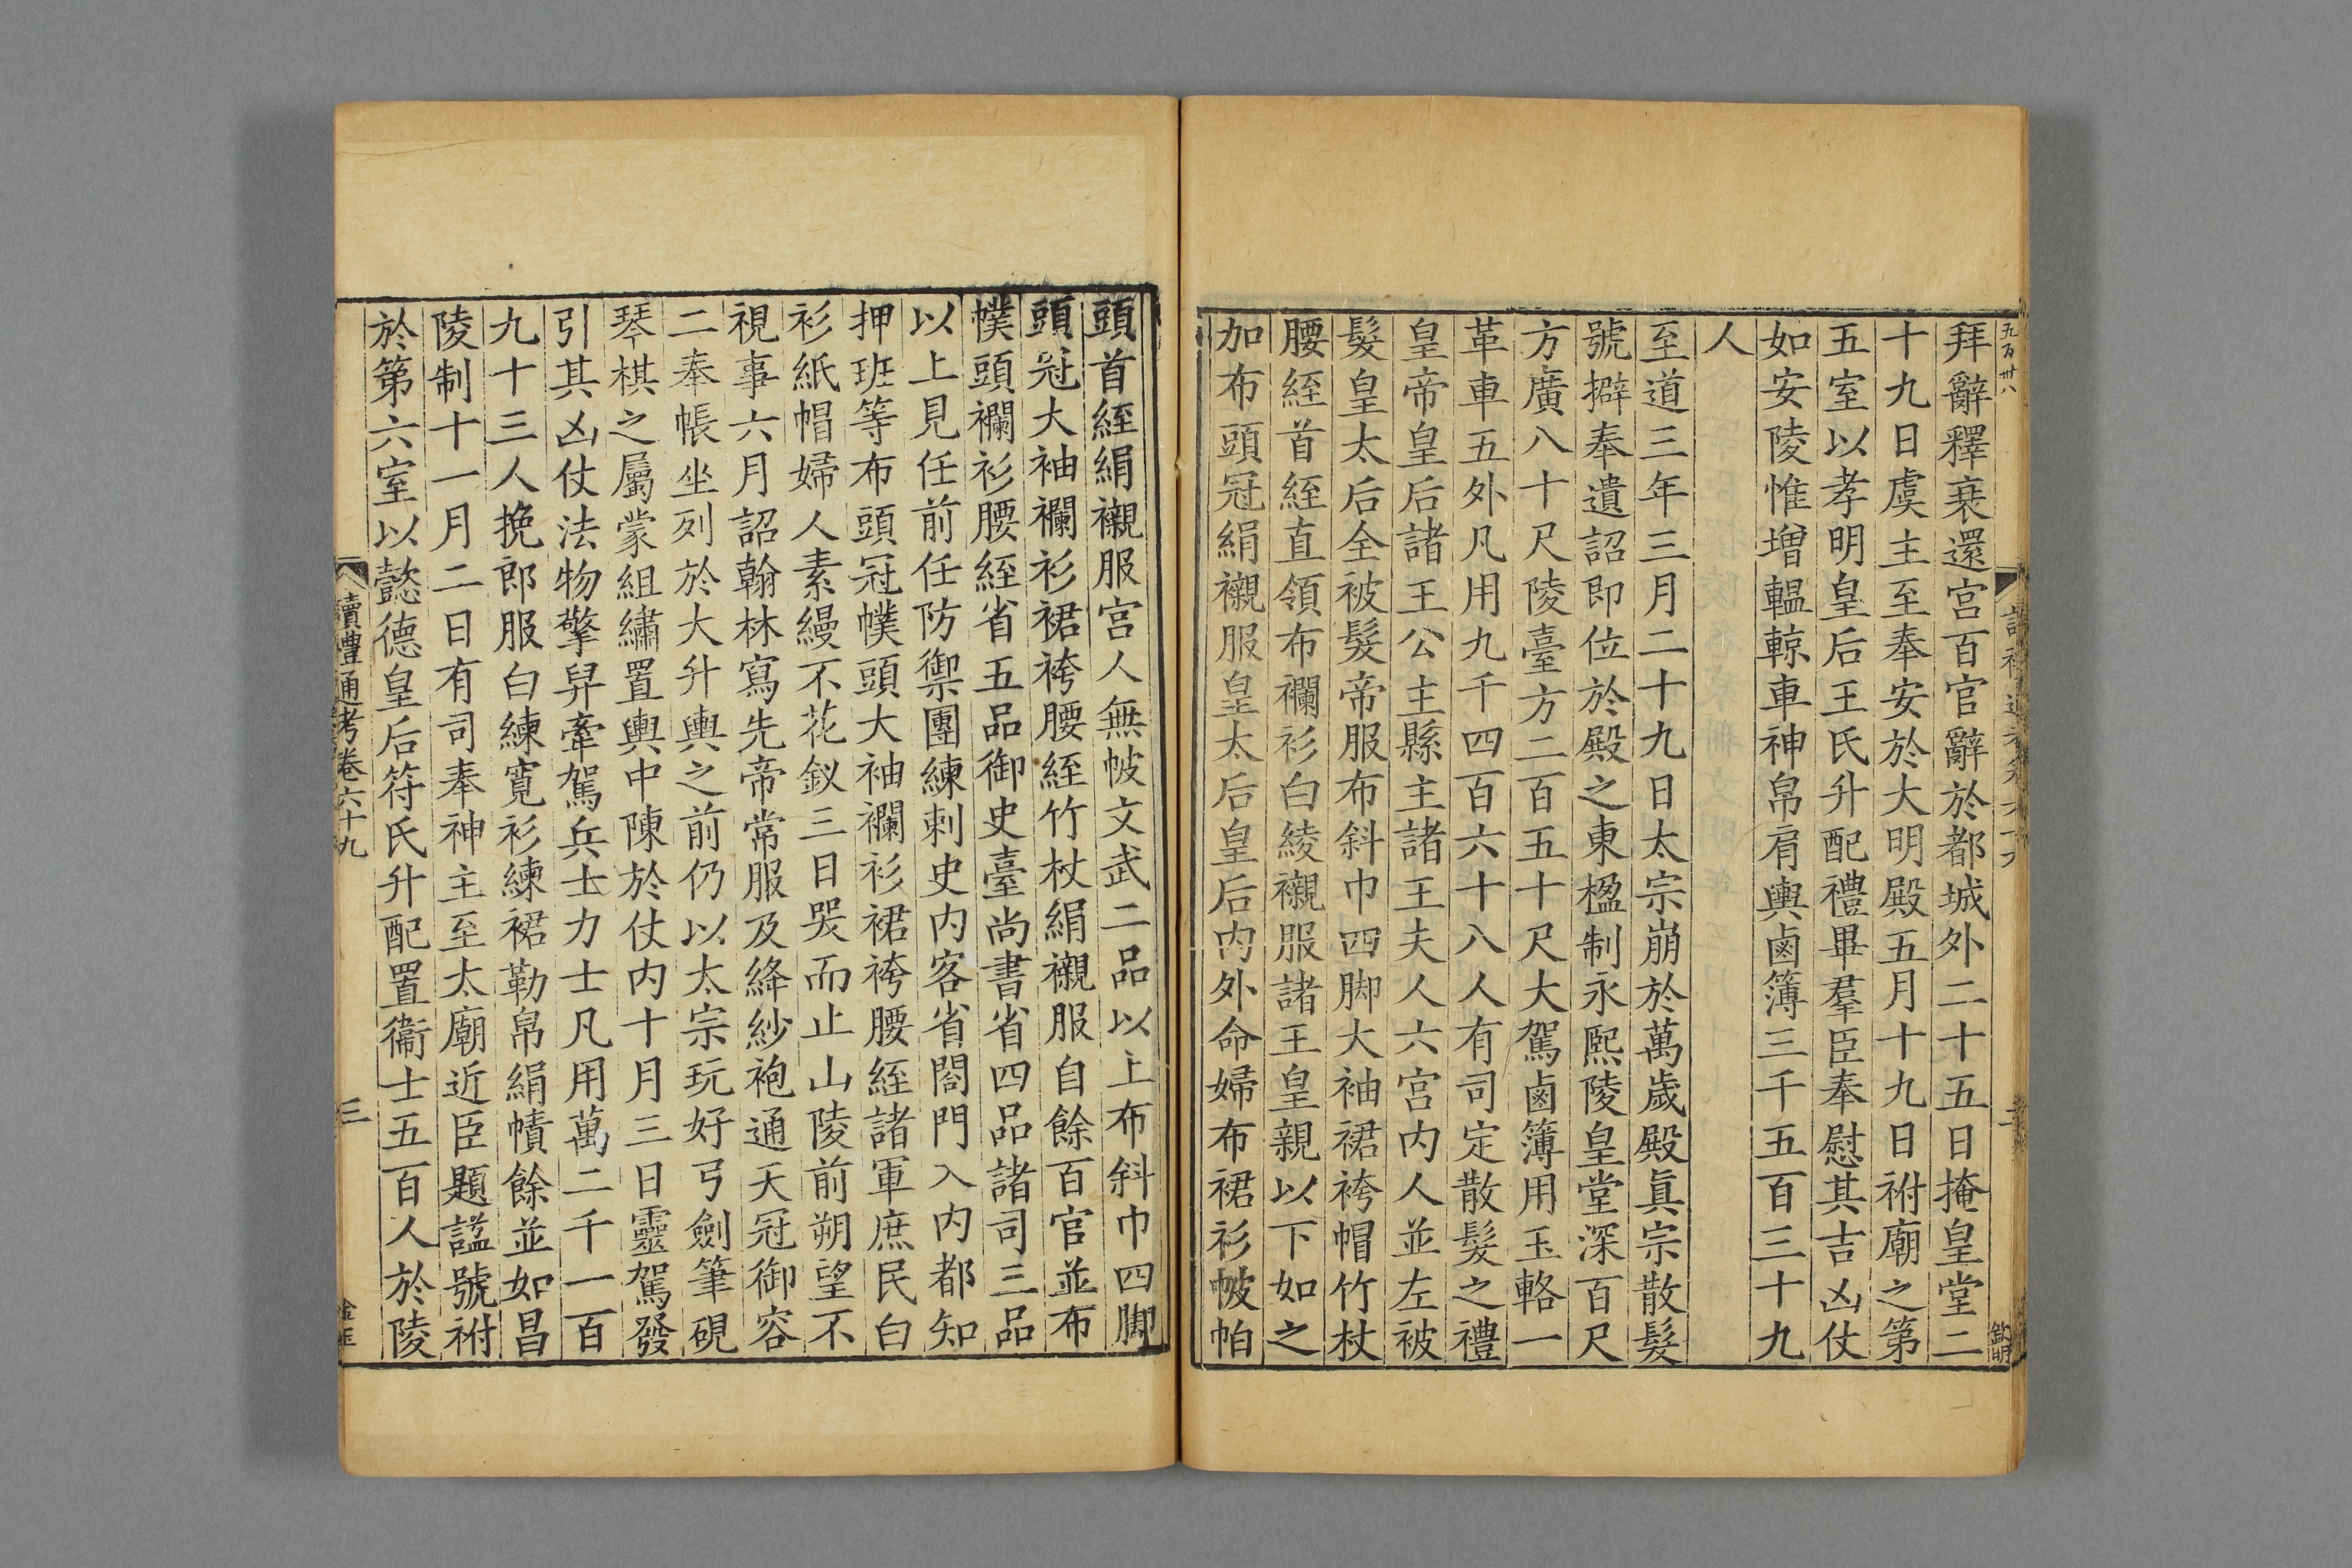 五百卅八
拜辭釋衰還宮百官辭於都城外二十五日掩皇堂二
十九日虞主至奉安於大明殿五月十九日祔廟之第
五室以孝明皇后王氏升配禮畢羣臣奉慰其吉凶仗
如安陵惟增轀輬車神帛肩輿鹵簿三千五百三十九
人
至道三年三月二十九日太宗崩於萬歲殿眞宗散髮
號擗奉遺詔即位於殿之東楹制永熙陵皇堂深百尺
方廣八十尺陵臺方二百五十尺大駕鹵簿用玉輅一
革車五外凡用九千四百六十八人有司定散髮之禮
皇帝皇后諸王公主縣主諸王夫人六宮內人並左被
髮皇太后全被髮帝服布斜巾四脚大袖裙袴帽竹杖
腰絰首絰直領布襴衫白綾襯服諸王皇親以下如之
加布頭冠絹襯服皇太后皇后內外命婦布裙衫帔帕
頭首絰絹襯服宮人無帔文武二品以上布斜巾四脚
頭冠大袖襴衫裙袴腰絰竹杖絹襯服自餘百官並布
幞頭襴衫腰絰省五品御史臺尚書省四品諸司三品
以上見任前任防禦團練刺史內客省閤門入內都知
押班等布頭冠幞頭大袖襴衫裙袴腰絰諸軍庶民白
衫紙帽婦人素縵不花釵三日哭而止山陵前朔望不
視事六月詔翰林寫先帝常服及絳紗袍通天冠御容
二奉帳坐列於大升輿之前仍以太宗玩好弓劍筆硯
琴棋之屬蒙組繡置輿中陳於仗內十月三日靈駕發
引其凶仗法物擎舁牽駕兵士力士凡用萬二千一百
九十三人挽郎服白練寬衫練裙勒帛絹幘餘並如昌
陵制十一月二日有司奉神主至太廟近臣題諡號祔
於第六室以懿德皇后符氏升配置衞士五百人於陵
讀禮通考卷六十九
三